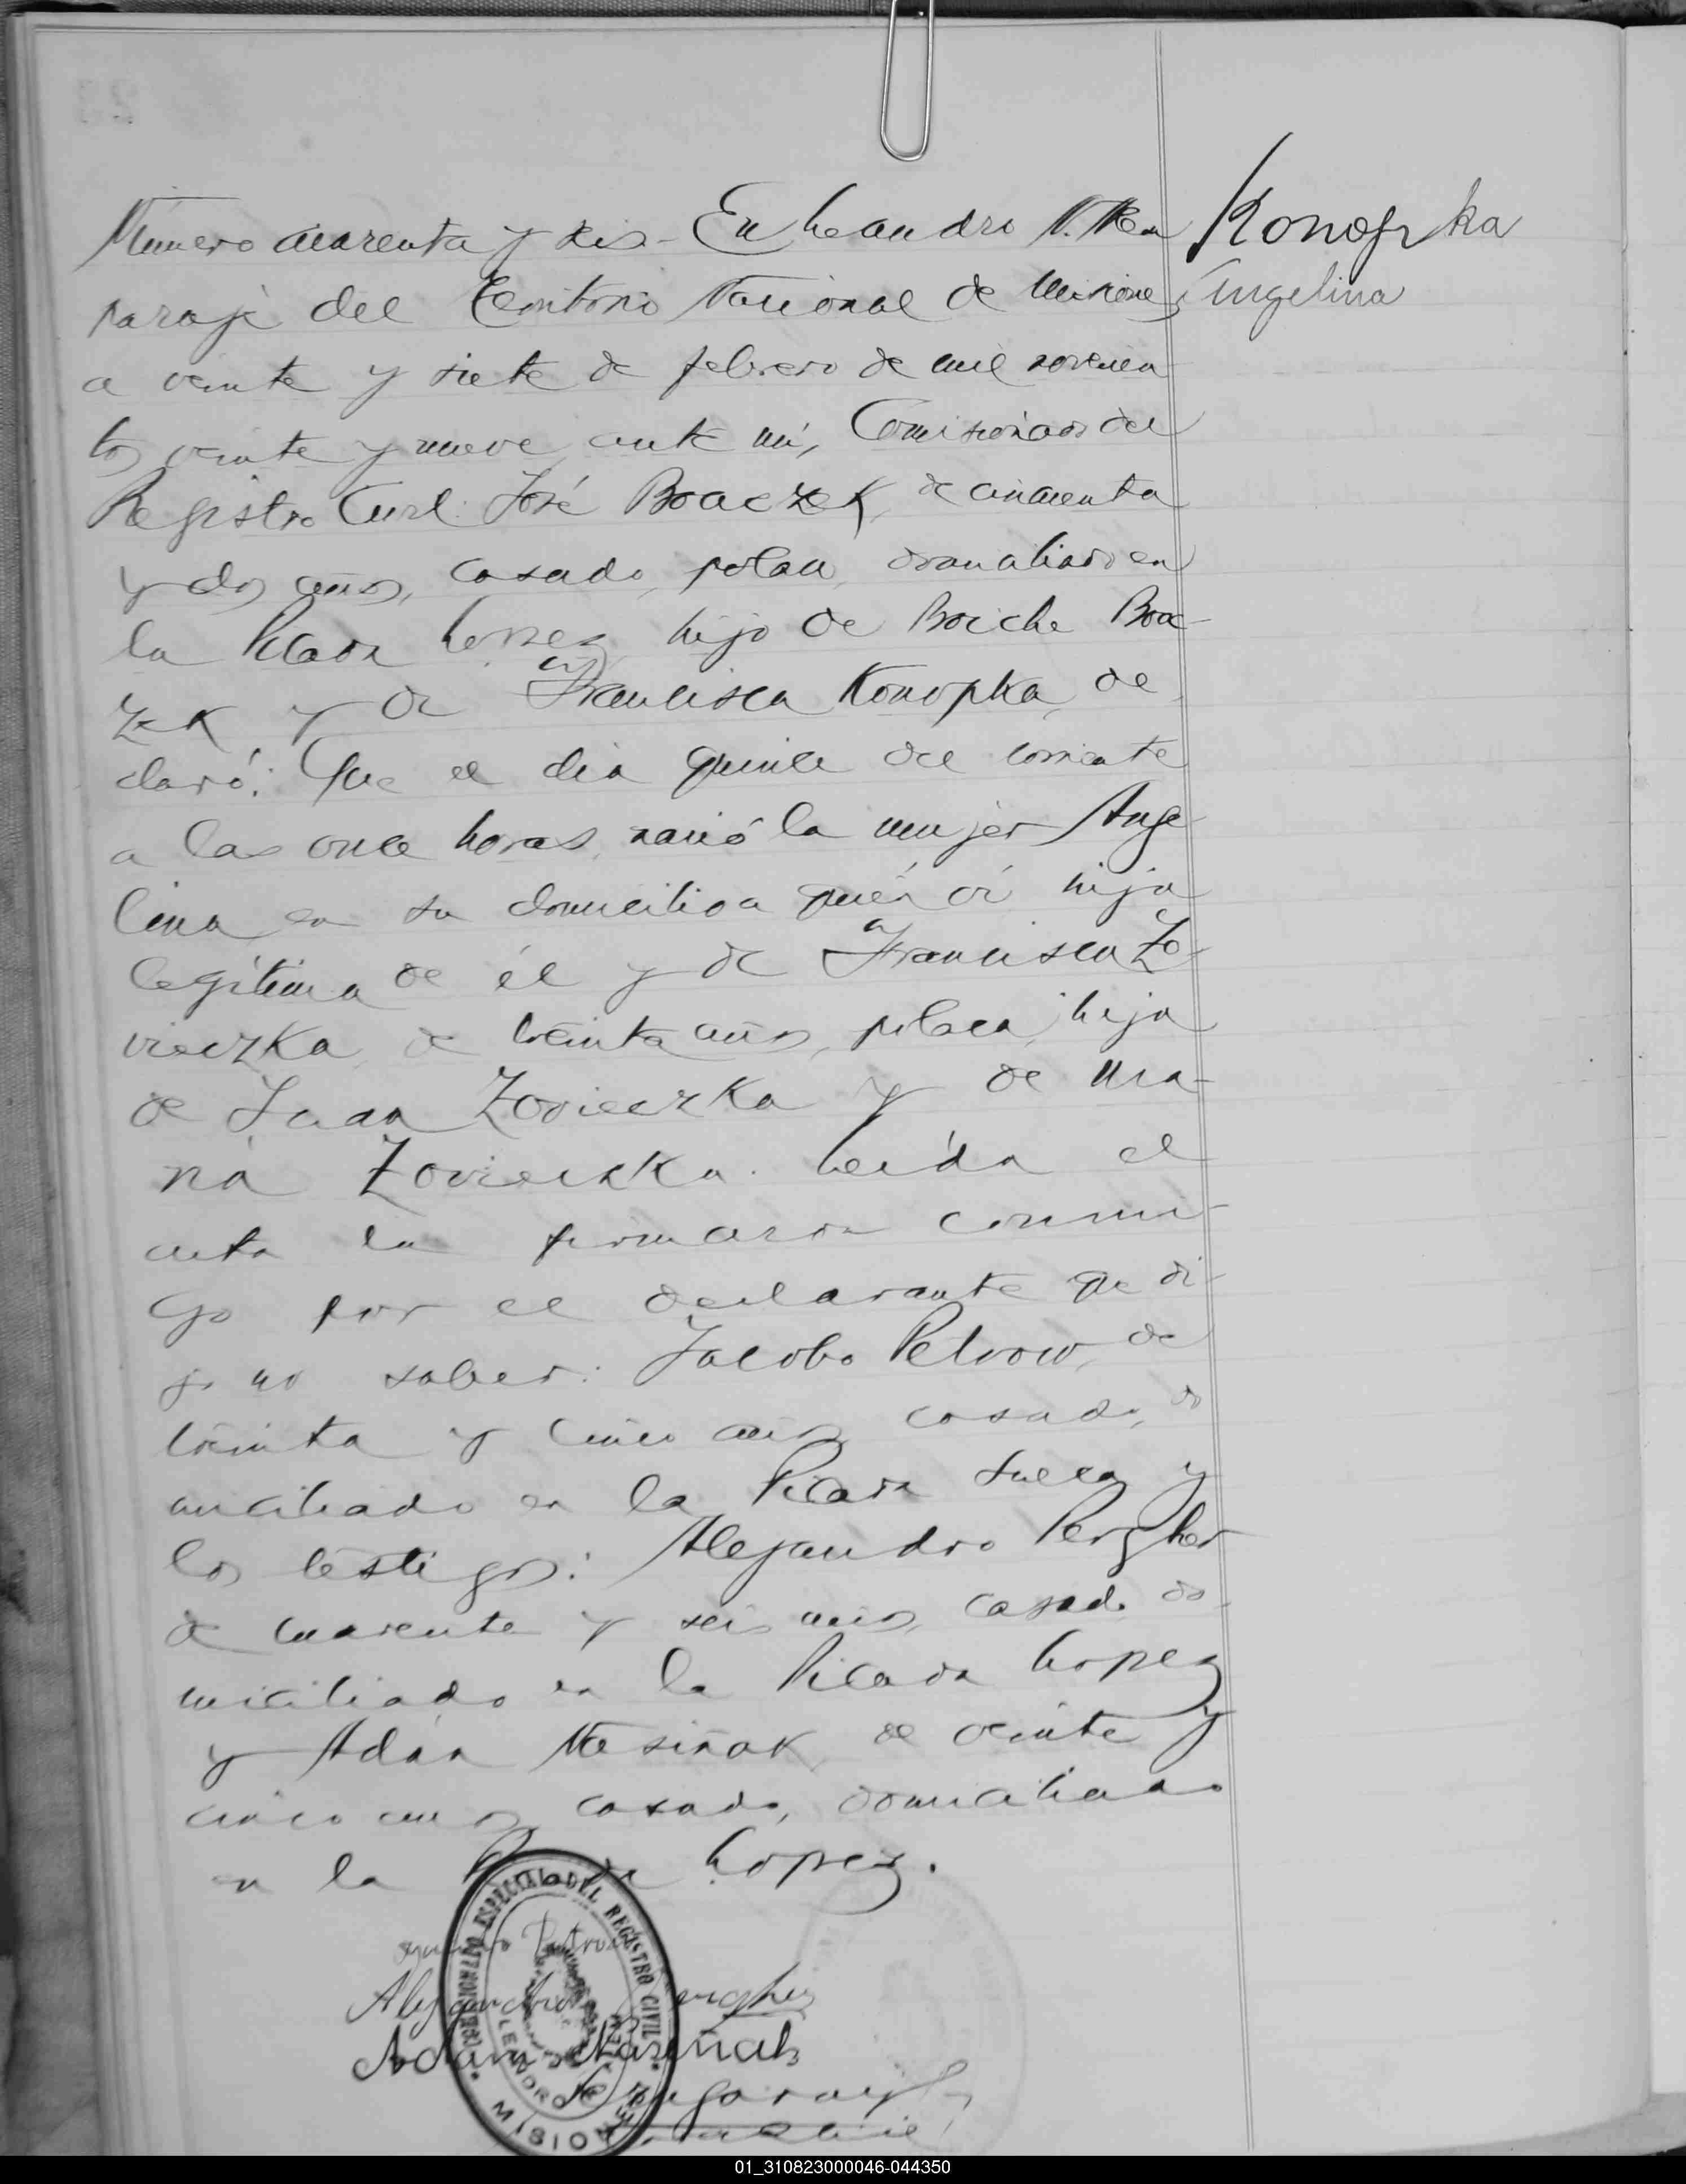 Número cuarenta y seis - En Leandro N. Alem
Konopka
paraje del Territorio Nacional de Misiones
Angelina
a veinte y siete de febrero de mil novecien
tos veinte y nueve ante mí, Comisionado del
Registro Civil: José Boaczek, de cincuenta
y dos años, casado, polaco, domiciliado en
la Picada Lopez, hijo de Boiche Boa-
zek y de Francisca Konopka, de
claró: Que el dia quince del corriente
a las once horas, nació la mujer Ange-
lina en su domicilio a quién ví hija
legítima de él y de Francisca Zo-
vieczka, de treinta años, polaca, hija
de Juan Zovieczka y de Ma-
ria Zovieczka. Leída el
acta la firmaron conmi-
go por el declarante que di-
jo no saber: Jacobo Petrow, de
treinta y cinco años, casado, do
miciliado en la Picada Sueca y
los testigos: Alejandro Pergher
de cuarenta y seis años, casado do-
miciliado en la Picada Lopez
y Adán Nasiñak, de veinte y
cinco años, casado, domiciliado
en la Picada Lopez.
Petrow
Alejandro Pergher
Adam Nasiñak
COMISIONADO ESPECIAL DEL REGISTRO CIVIL
LEANDRO N. ALEM
MISIONES
01_310823000046-044350